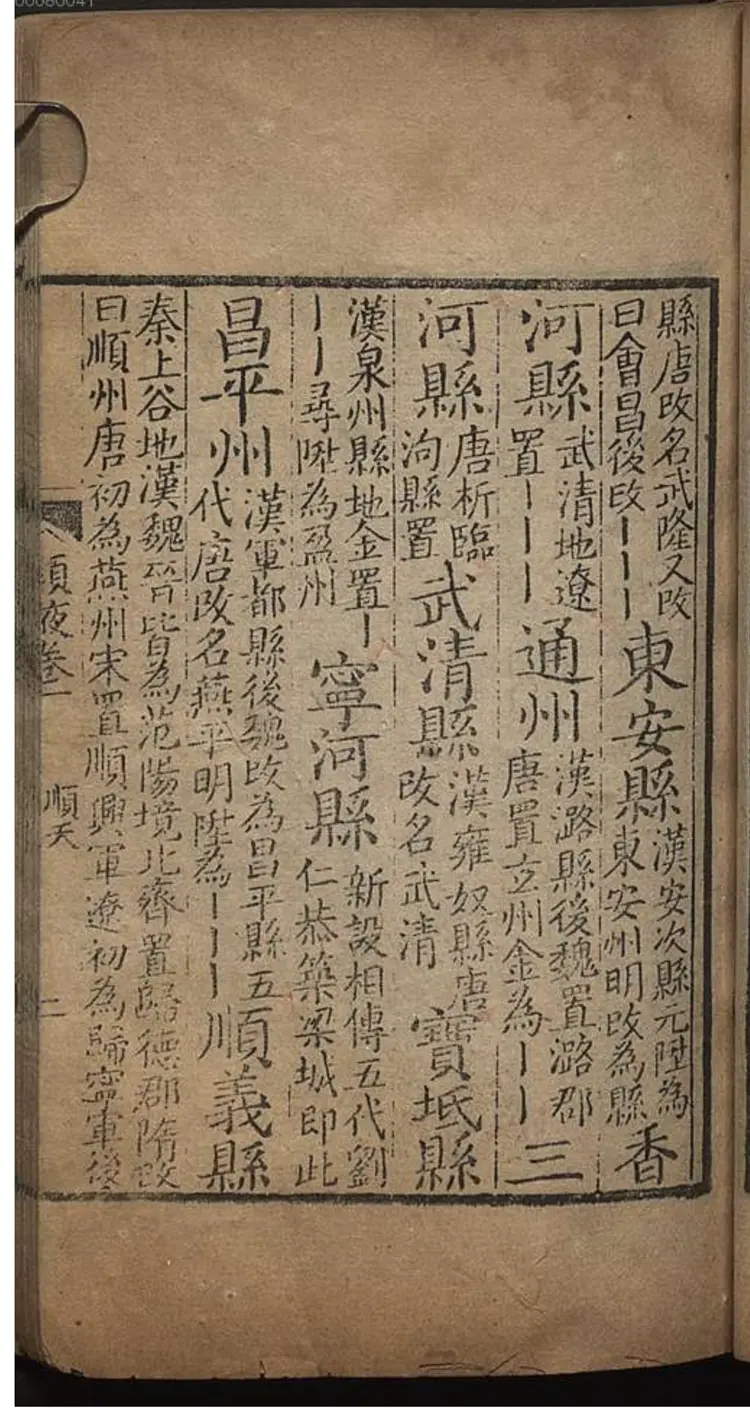 縣唐改名武隆又改
曰會昌後改丨丨丨
東安縣
漢安次縣元陞為
東安州明改為縣
香
河縣
武清地遼
置丨丨丨
通州
漢潞縣後魏置潞郡
唐置立州金為丨丨
三
河縣
唐析臨
泃縣置
武清縣
漢雍奴縣唐
改名武清
寶坻縣
漢泉州縣地金置丨
丨丨尋陞為盈州
寧河縣
新設相傳五代劉
仁恭築梁城即此
昌平州
漢軍都縣後魏改為昌平縣五
代唐改名燕平明陞為丨丨丨
順義縣
秦上谷地漢魏晉皆為范陽境北齊置歸德郡隋改
曰順州唐初為燕州宋置順興軍遼初為歸寧軍後
須夜卷一
順天
二